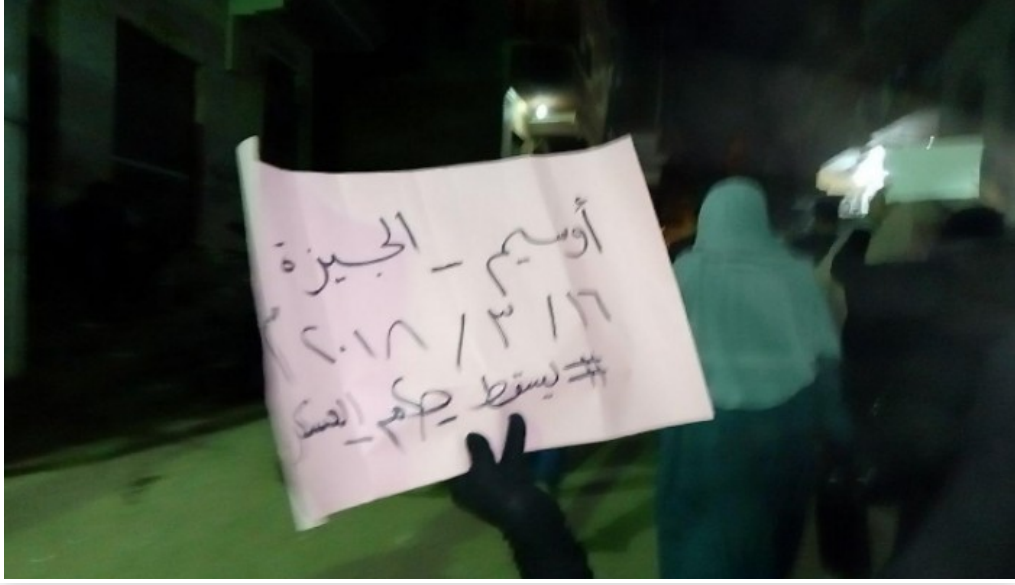 أوسيم - الجيزة
١٦ / ٣ / ٢٠١٨ م
#ليسقط_حكم_العسكر